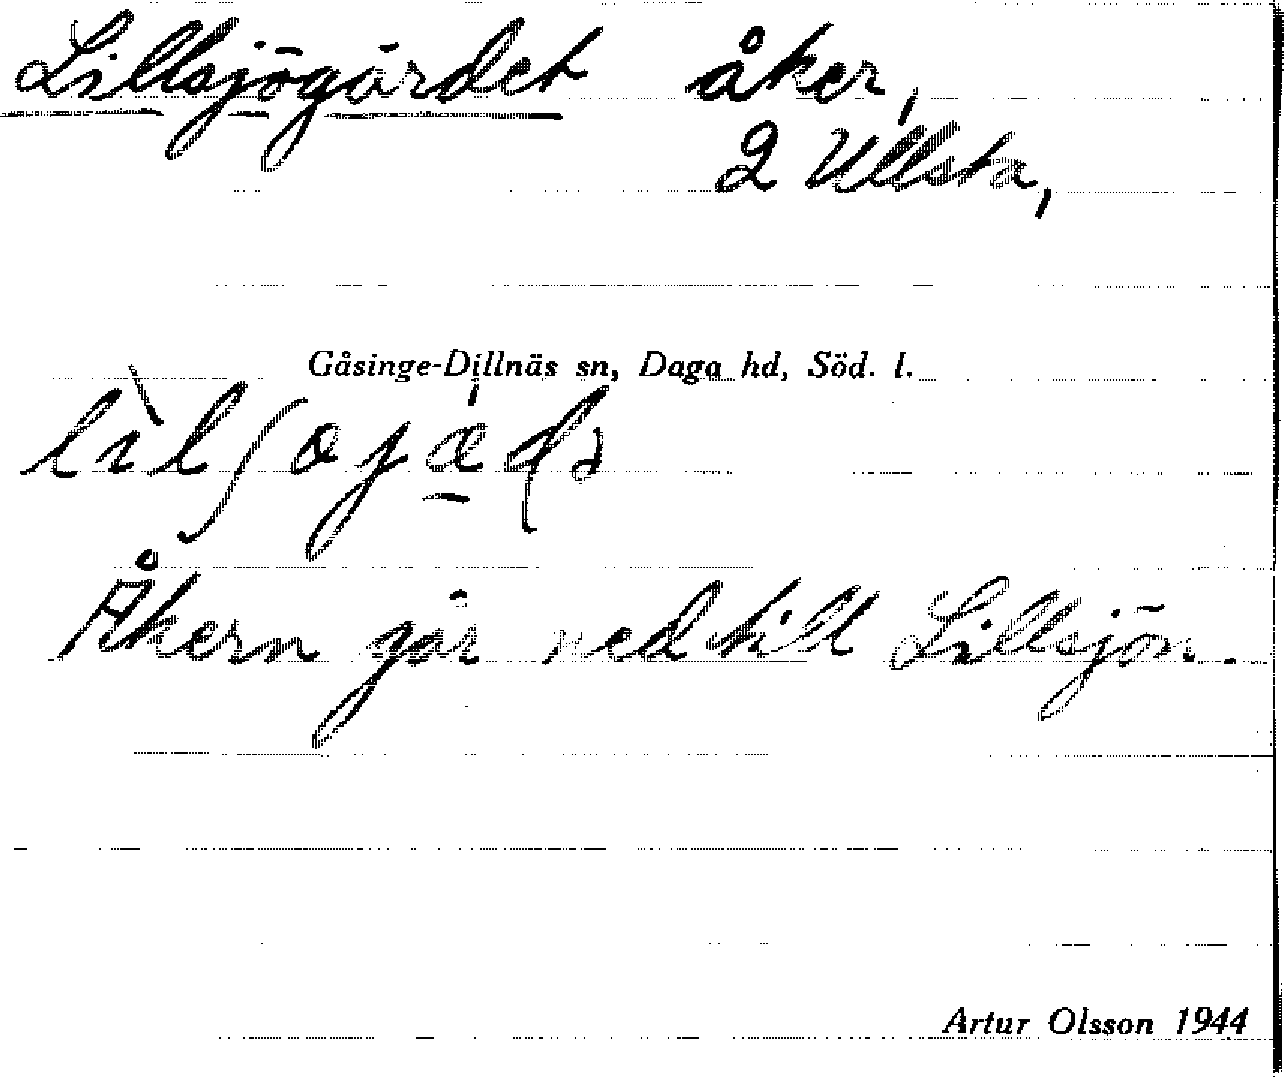 Lillsjögärdet åker,
2 Ullsta,
Gåsinge-Dillnäs sn, Daga hd, Söd. l.
Åkern går ned till Lillsjön.
Artur Olsson 1944